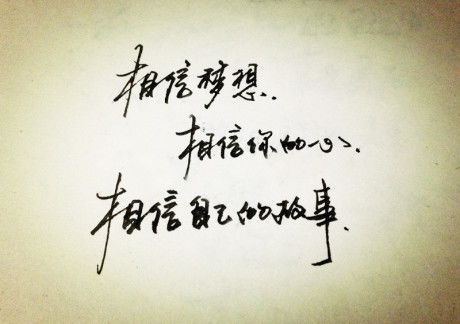 相信梦想.
相信你的心.
相信自己的故事.